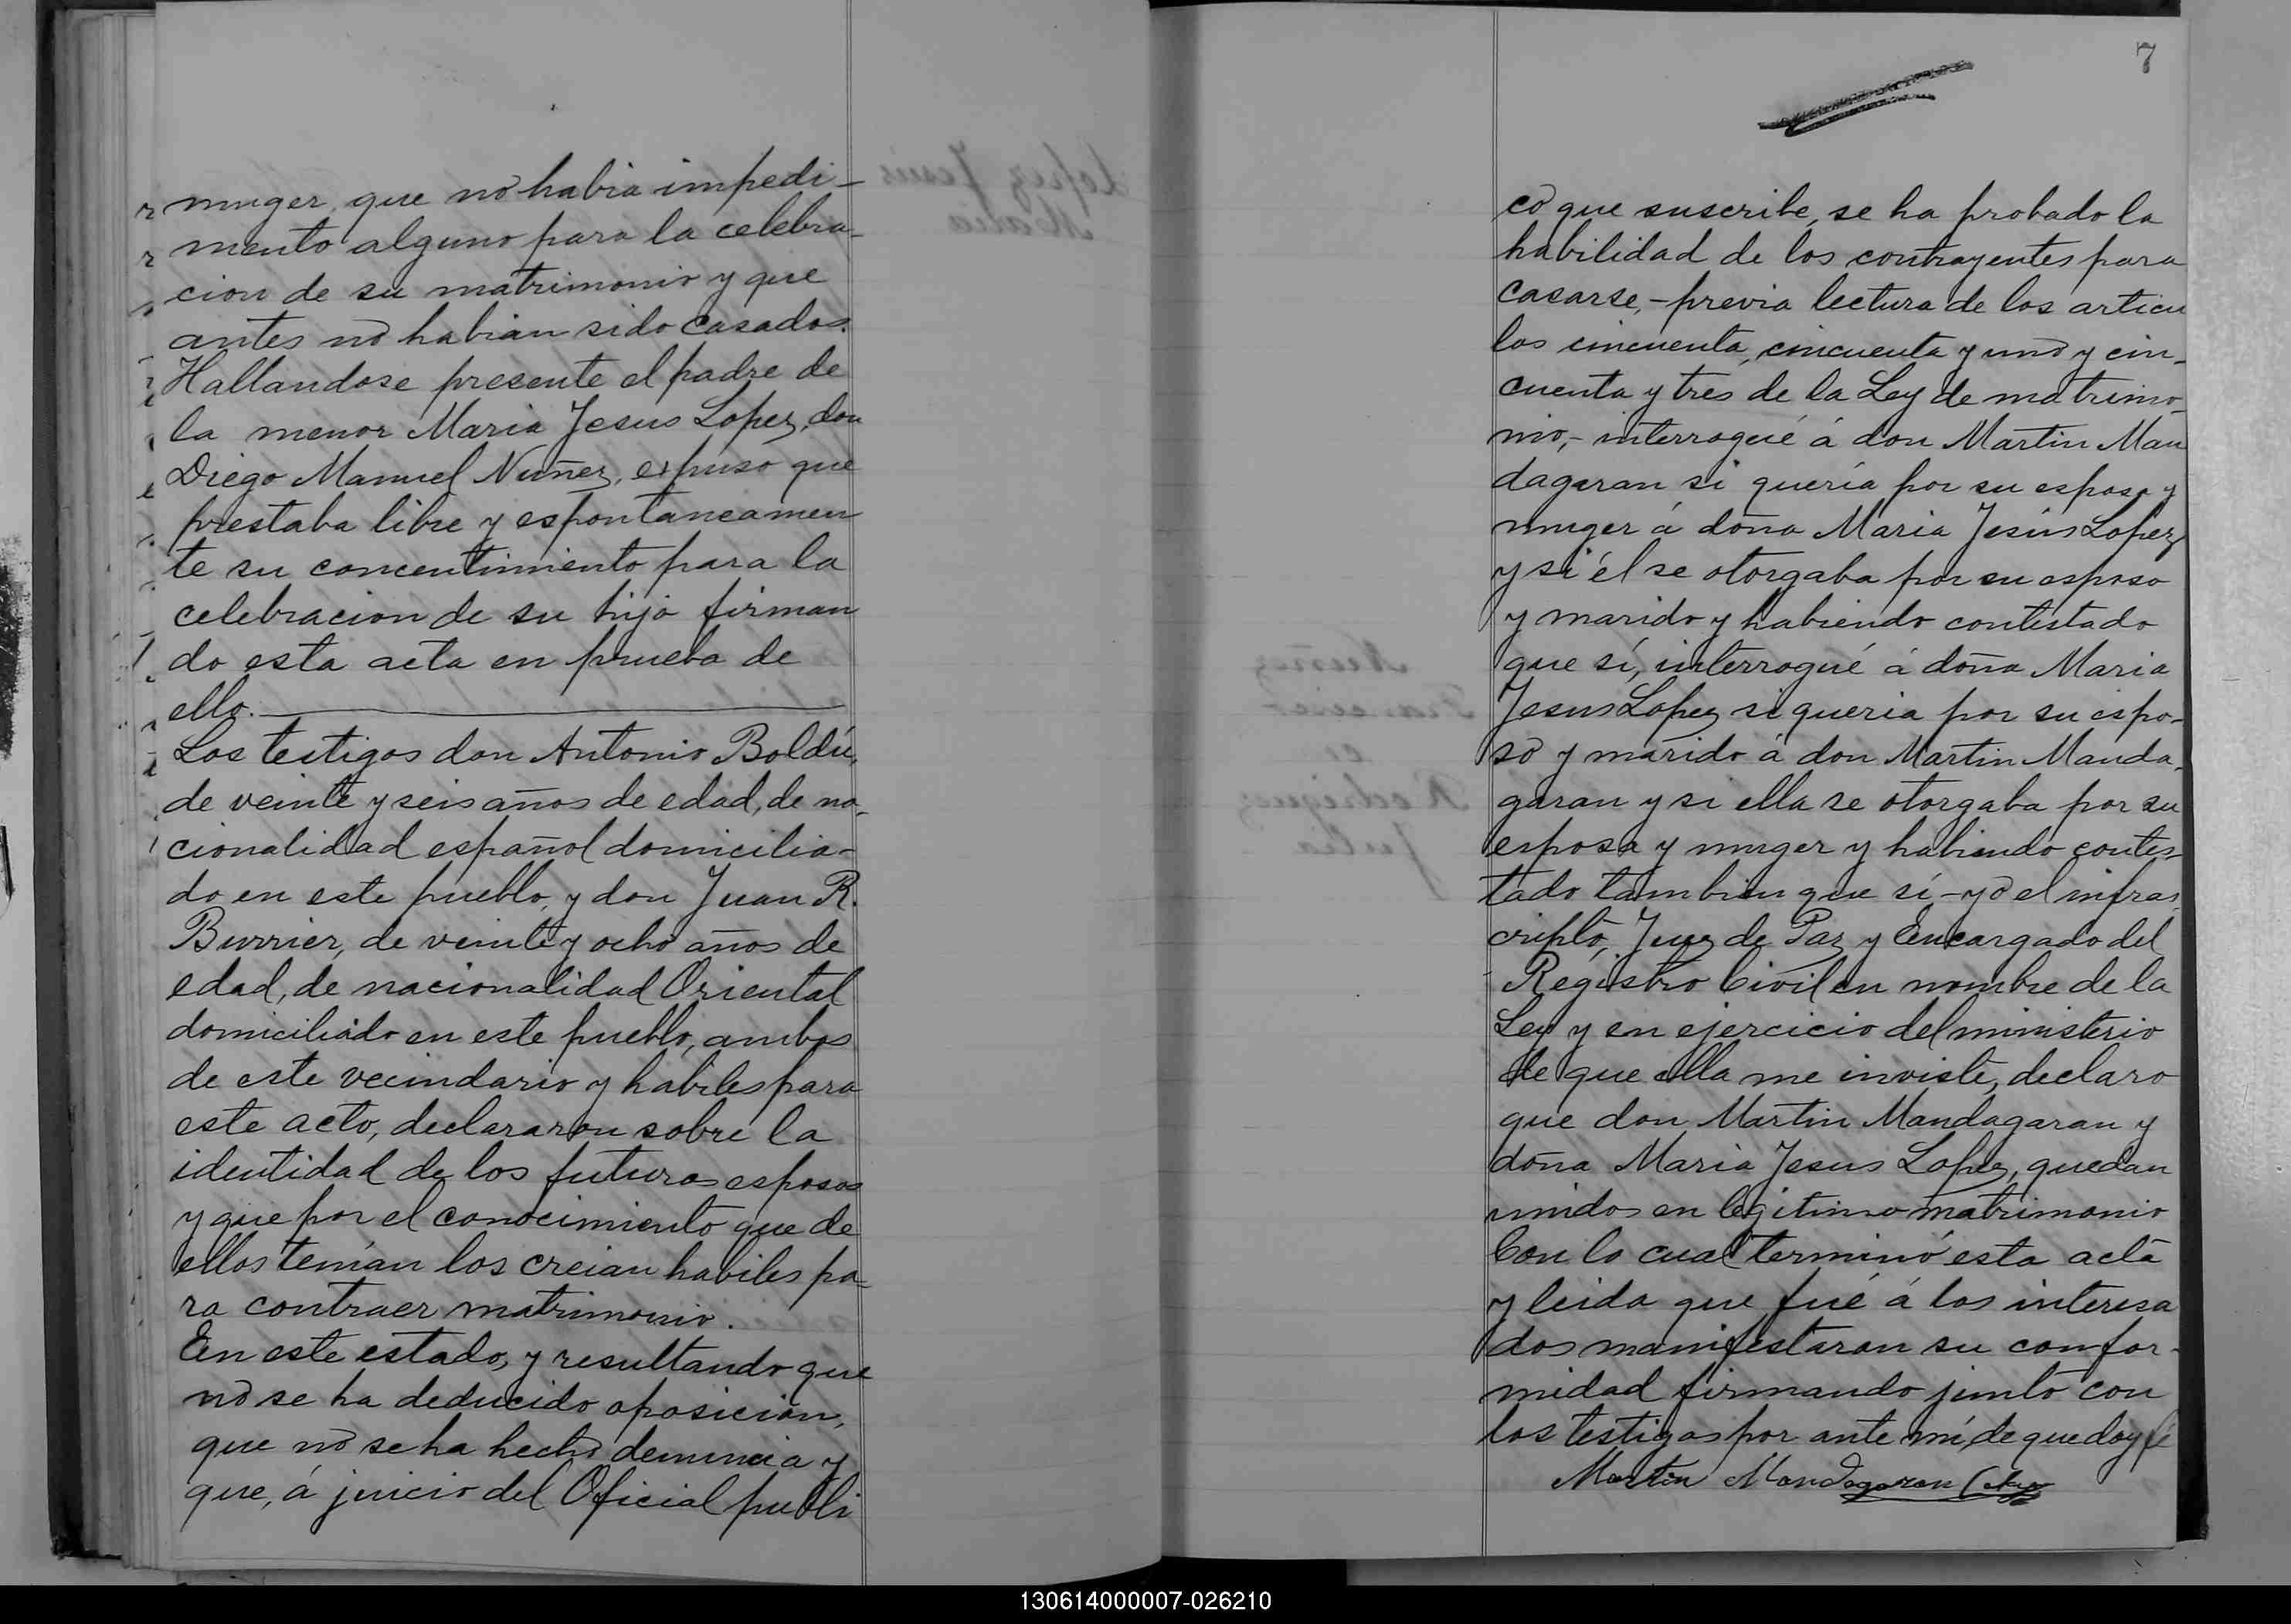 muger, que no habia impedi-
mento alguno para la celebra-
cion de su matrimonio y que
antes no habian sido casados.
Hallandose presente el padre de
la menor Maria Jesus Lopez, don
Diego Manuel Nuñez, expuso que
prestaba libre y espontaneamen
te su concentimiento para la
celebracion de su hija firman
do esta acta en prueba de
ello.
Los testigos don Antonio Boldú,
de veinte y seis años de edad, de na-
cionalidad español domicilia-
do en este pueblo, y don Juan R.
Burrier, de veinte y ocho años de
edad, de nacionalidad Oriental
domiciliado en este pueblo, ambos
de este vecindario y habiles para
este acto, declararon sobre la
identidad de los futuros esposos
y que por el conocimiento que de
ellos tenían los creian habiles pa-
ra contraer matrimonio.
En este estado, y resultando que
no se ha deducido oposicion,
que no se ha hecho denuncia y
que, á juicio del Oficial publi
7
co que suscribe, se ha probado la
habilidad de los contrayentes para
casarse,-previa lectura de los articu
los cincuenta, cincuenta y uno y cin-
cuenta y tres de la Ley de matrimo-
nio,- interrogué á don Martin Man
dagaran si quería por su esposa y
muger á doña Maria Jesús Lopez
y si él se otorgaba por su esposo
y marido y habiendo contestado
que sí, interrogué á doña Maria
Jesus Lopez si queria por su espo-
so y marido á don Martin Manda-
garan y si ella se otorgaba por su
esposa y muger y habiendo contes-
tado tambien que sí-yo el infras
cripto, Juez de Paz y Encargado del
Registro Civil en nombre de la
Ley y en ejercicio del ministerio
de que ella me inviste, declaro
que don Martin Mandagaran y
doña Maria Jesus Lopez, quedan
unidos en legitimo matrimonio
Con lo cual terminó esta acta
y leida que fué á los interesa
dos manifestaron su confor-
midad firmando junto con
los testigos por ante mí, de que doy fé
Martin Mandagaran
130614000007-026210